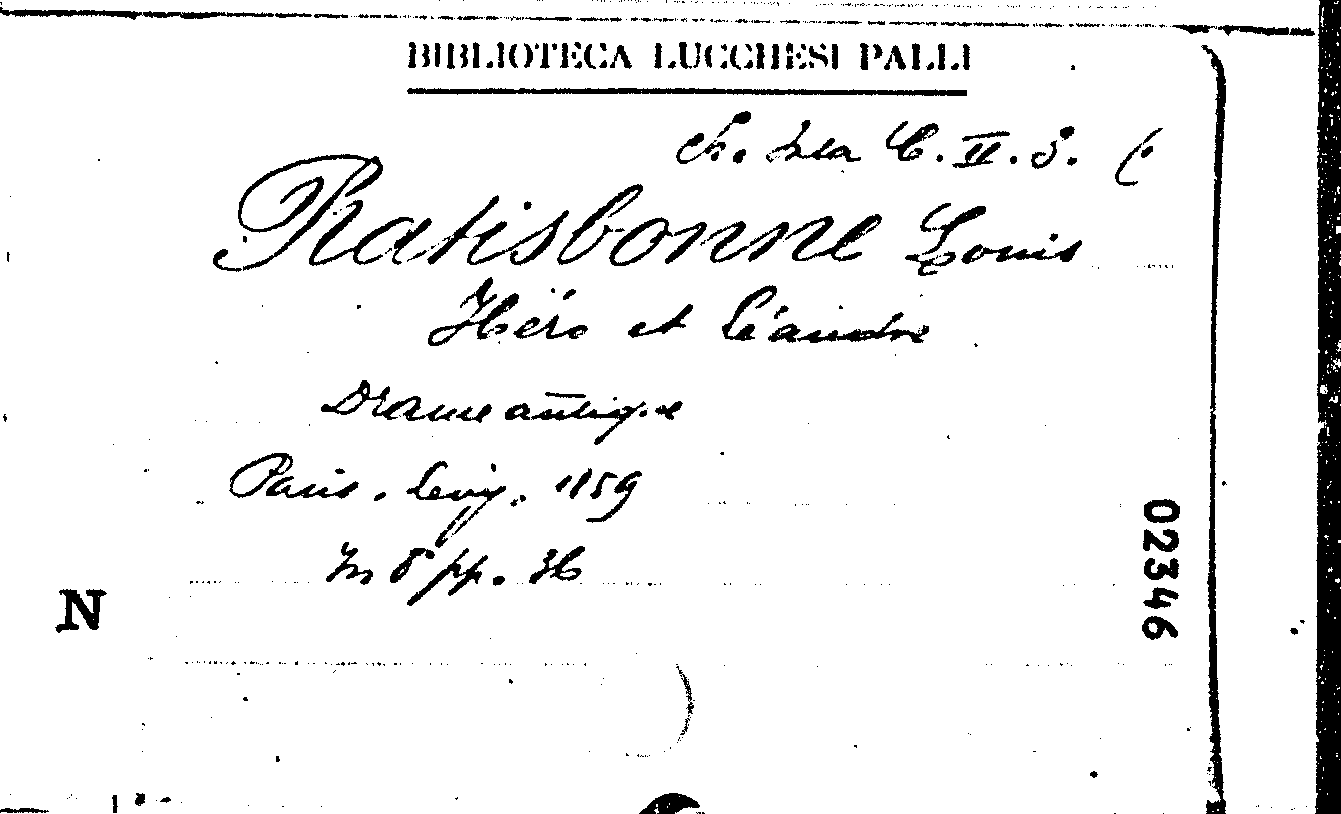 BIBLIOTECA LUCCHESI PALLI
C. II. 3. (
Ratisbonne Louis
Héro et Léandre
Drame antique
Paris. Levy. 1859
In 8° pp. 36
N
02346